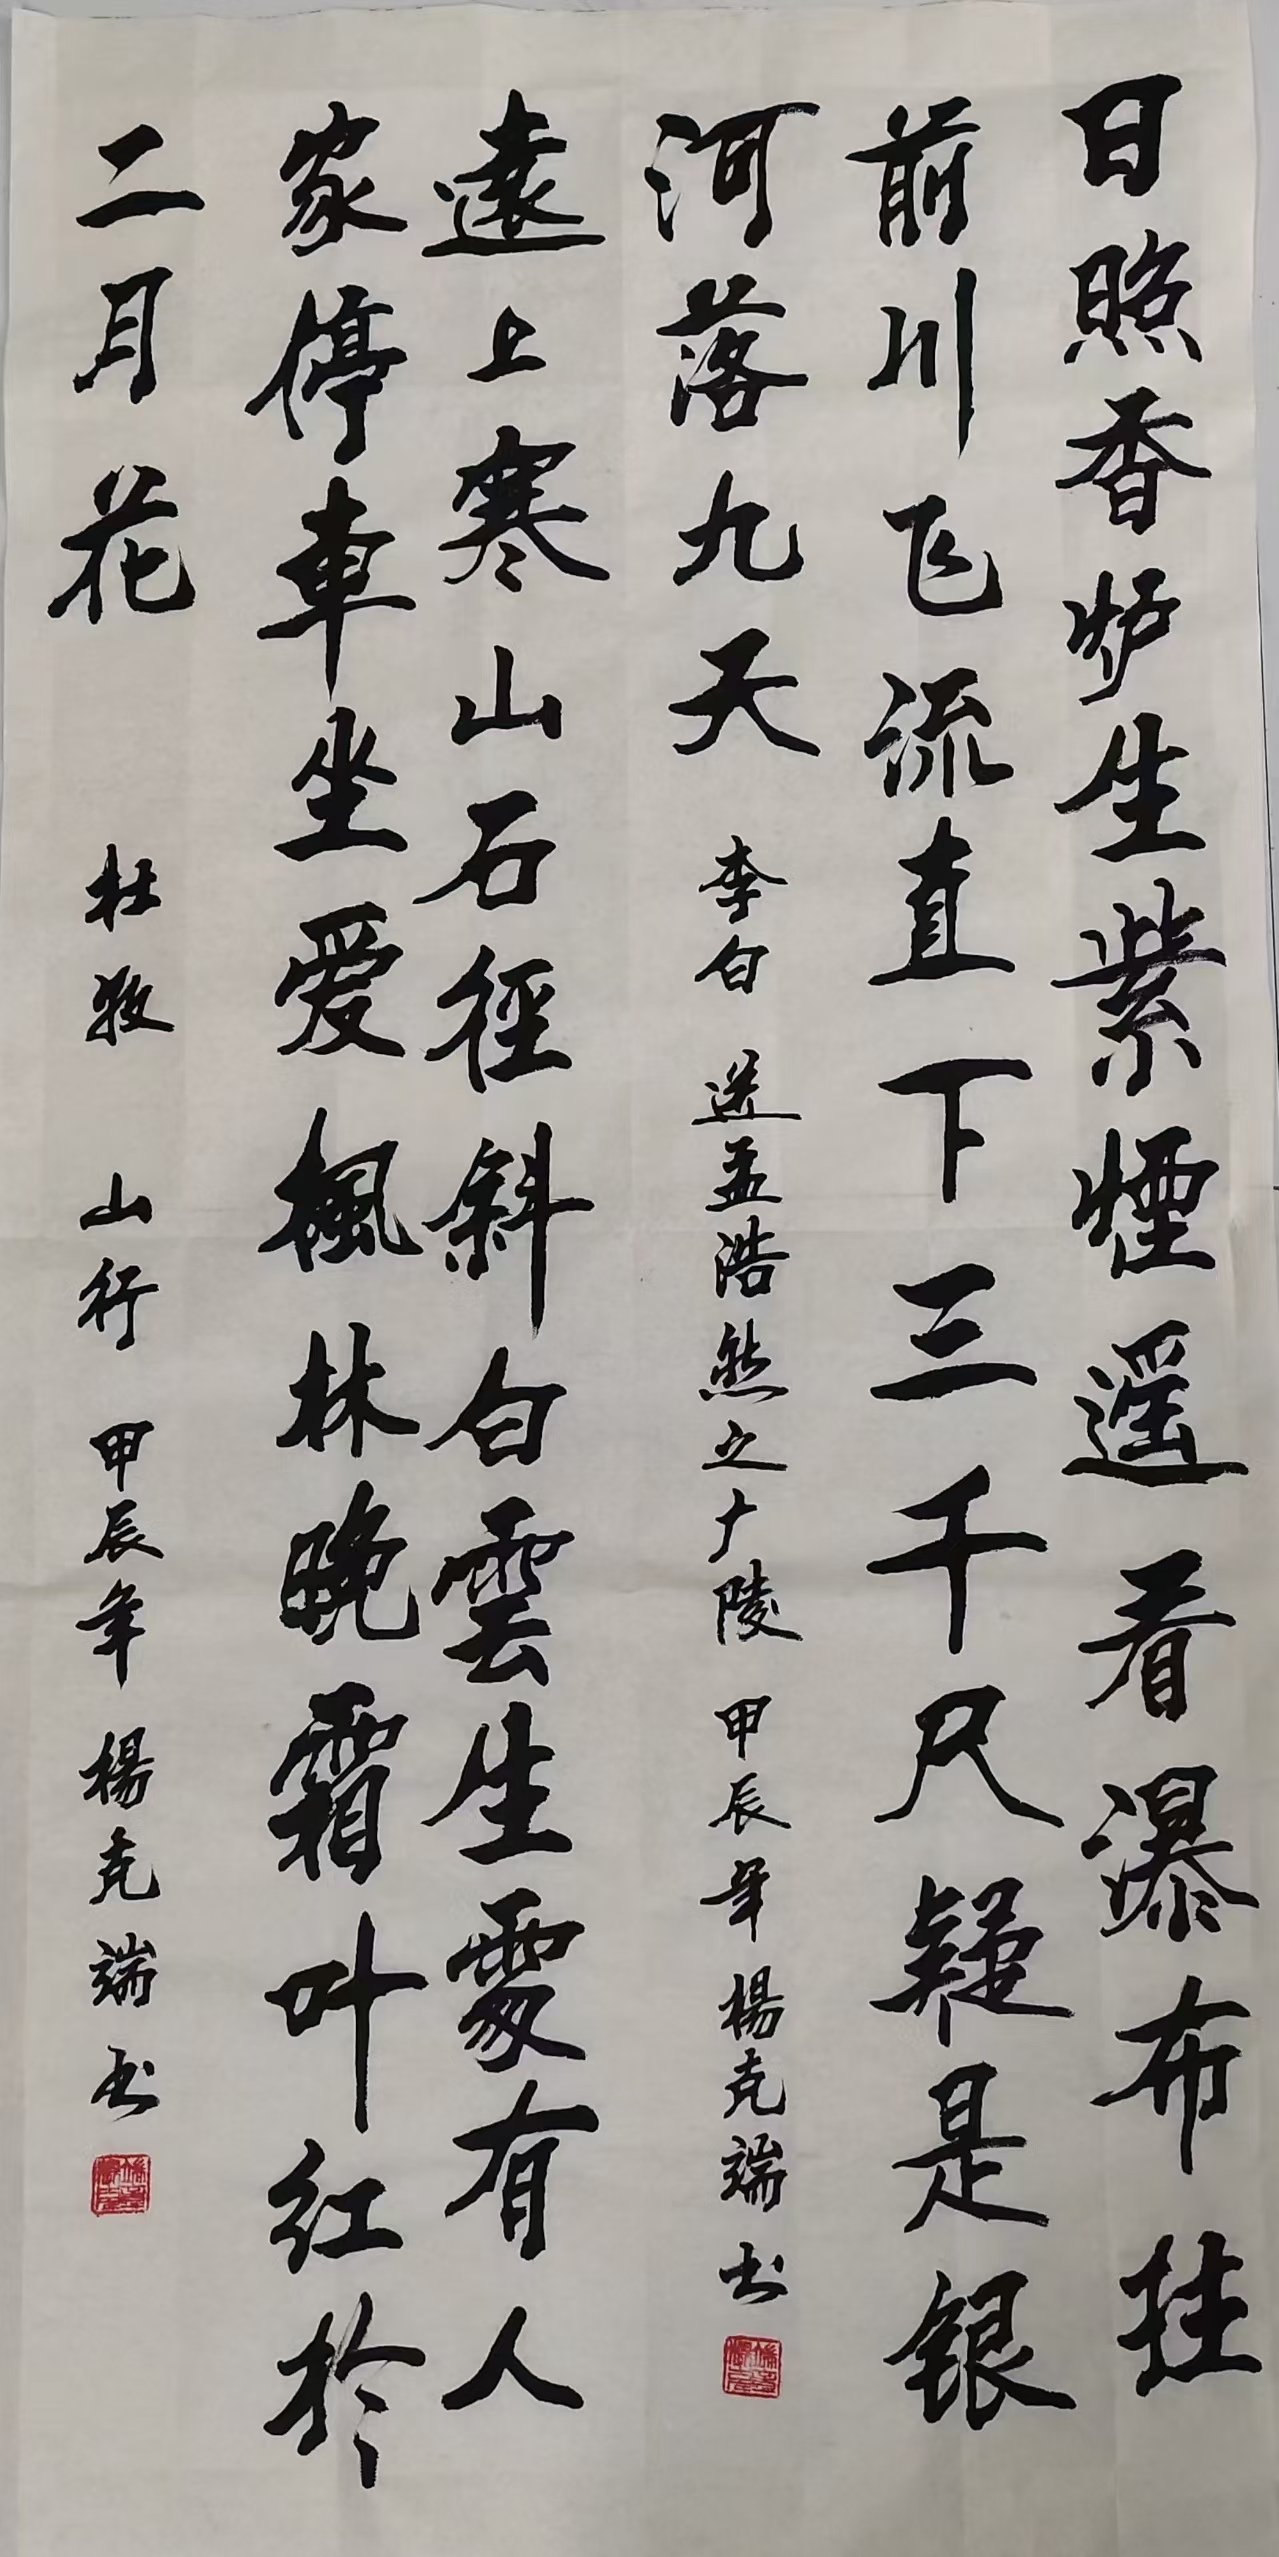 日照香炉生紫煙遥看瀑布挂
前川飞流直下三千尺疑是銀
河落九天 李白 送孟浩然之广陵 甲辰年 楊克端书
遠上寒山石徑斜白雲生處有人
家停車坐爱楓林晚霜叶红於
二月花 杜牧 山行 甲辰年 楊克端书